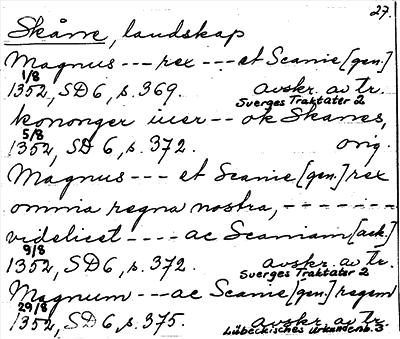 27.
Skåne, landskap
Magnus --- rex --- et Scanie [gen.]
1/8
1352, SD 6, s. 369. avskr. av tr.
Sverges Traktater 2
kononger iuer -- ok Skanes,
5/8
1352, SD 6, s. 372. orig.
Magnus --- et Scanie [gen.] rex
omnia regna nostra, -------
videlicet ---- ac Scaniam [ack.]
9/8
1352, SD 6, s. 372. avskr. av tr.
Sverges Traktater 2
Magnum --- ac Scanie [gen.] regem
29/8
1352, SD 6, s. 375. avskr. av tr.
Lübeckisches Urkundenb. 3